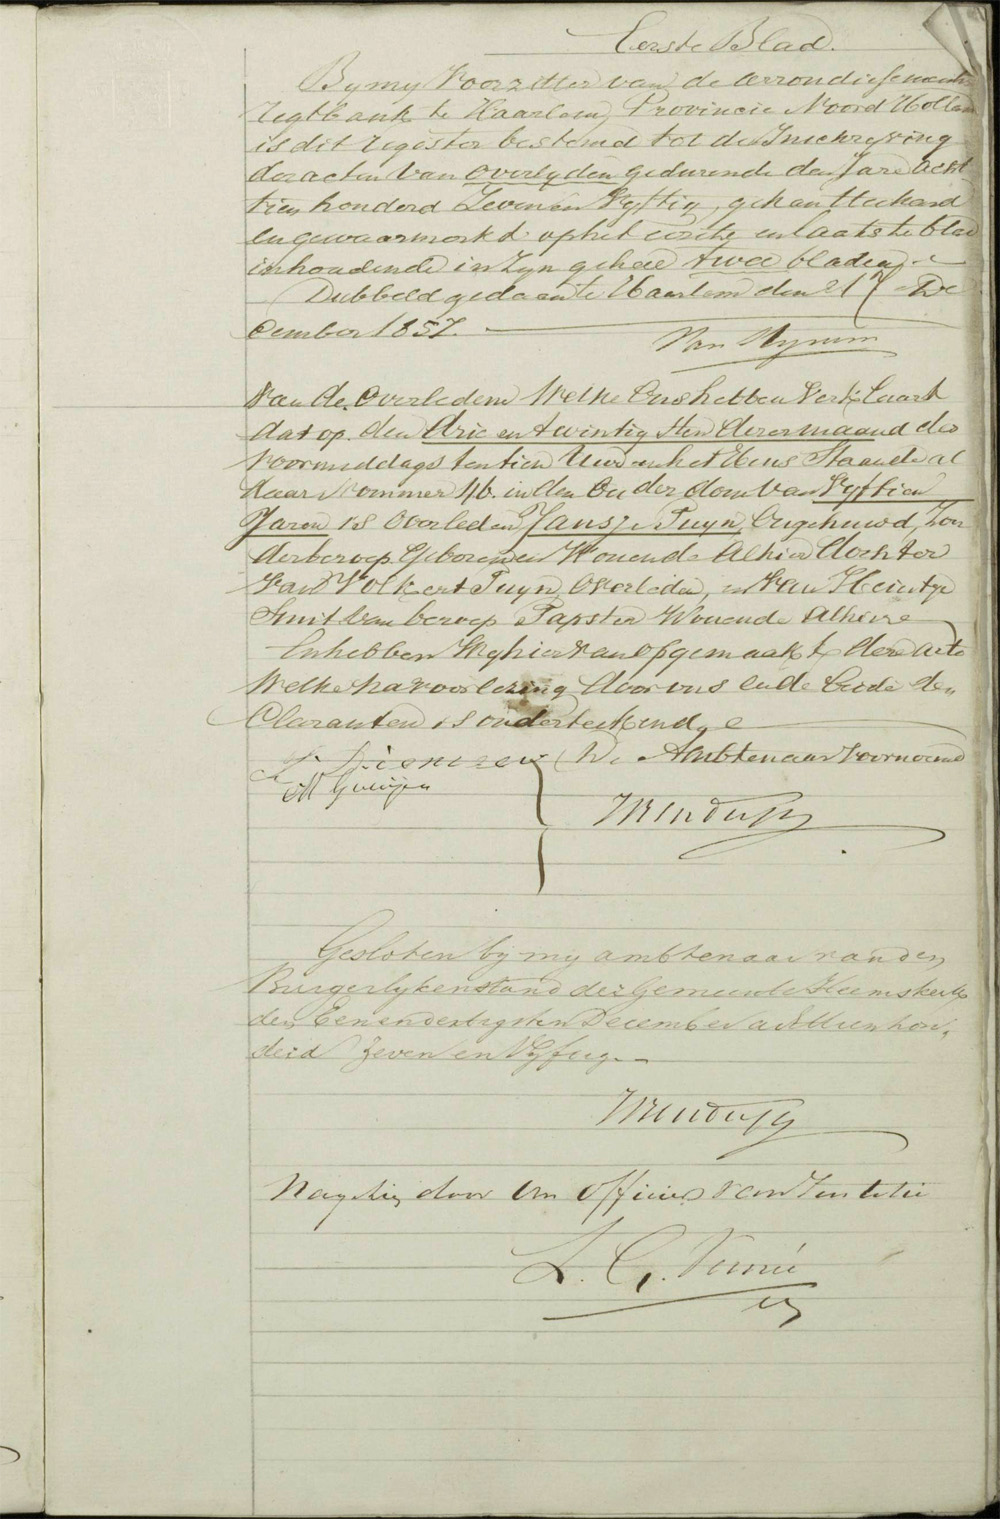 Eerste Blad.
By my Voorzitter van de Arrondissements
regtbank te Haarlem, Provincie Noord Holland
is dit register bestemd tot de Inschryving
der acten van Overlyden gedurende den Jare acht
tien honderd Zeven en Vyftig, gekantteekend
en gewaarmerkt op het eerste en laatste blad
inhoudende in zyn geheel twee bladen.
Dubbeld gedaan te Haarlem den 21 De
cember 1857.
Van
Van de Overledene Welke Ons hebben Verklaart
dat op den drie en twintigsten dezer maand des
voormiddags ten tien Uure in het Huis Staande al
daar Nommer 46. in den Ouderdom van Vyftien
Jaren is Overleden Jansje Tuyn, Ongehuwd, Zon
der beroep Geboren en Wonende Alhier dochter
van Volkert Tuyn Overleden, en Van Heintje
Smit van beroep Tapster Wonende Alhier
En hebben Wy hier van opgemaakt deze acte
Welke na voorlezing door ons en de beide de
Claranten is onderteekend
De Ambtenaar Voornoemd
Gesloten by my ambtenaar van den
Burgerlyken stand der Gemeente Heemskerk
den Een en dertigsten December achttien hon
derd Zeven en Vyftig.
Nagezien door den Officier van Justitie
L. G.